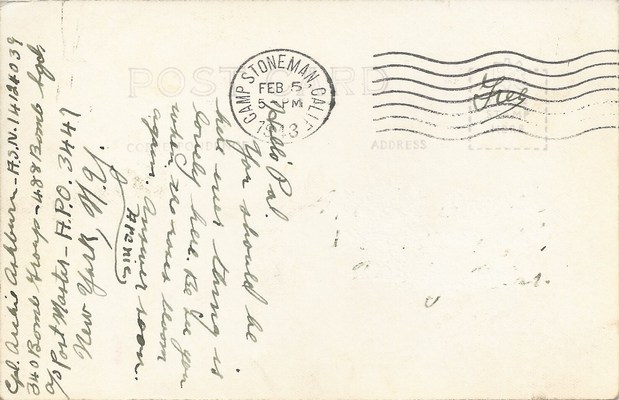 POST CARD
CAMP STONEMAN, CALIF.
FEB 5
5 PM
1943
Free
CORRESPONDENCE
ADDRESS
Hello Pal.
You should be
here ever thing is
lovely here. Be see you
when we come
again. Answer soon.
Archie
Cpl. Archie Ashburn - A.S.N. 14124039
340 Bomb Group - 488 Bomb Sqd
c/o Post Master - A.P.O. 3447
New York, N.Y.